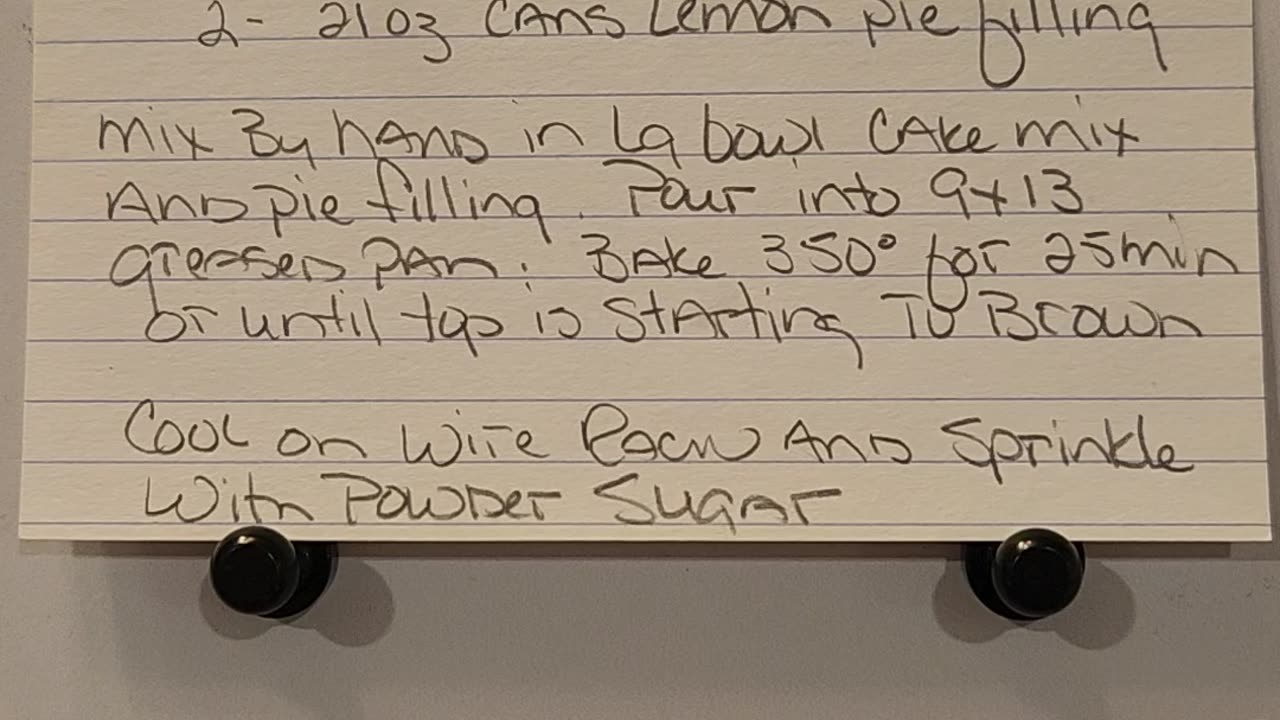 2- 21oz CANS Lemon pie filling
mix By hAND in Lg bowl CAke mix
AND pie filling. Pour into 9x13
greased PAN. BAke 350° for 25min
or until top is STARting To Brown
Cool on Wire Rack AND Sprinkle
With Powder Sugar